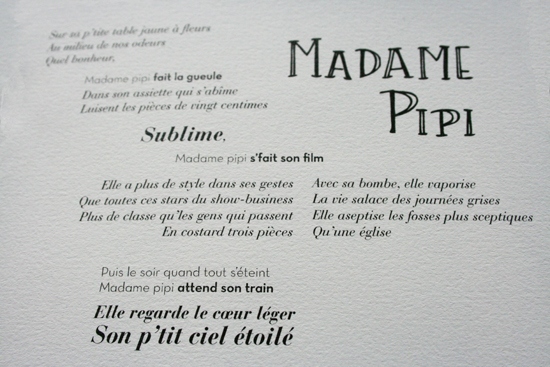 Sur sa p'tite table jaune à fleurs
Au milieu de nos odeurs
Quel bonheur,
Madame pipi fait la gueule
Dans son assiette qui s'abîme
Luisent les pièces de vingt centimes
MADAME
PIPI
Sublime,
Madame pipi s'fait son film
Elle a plus de style dans ses gestes
Que toutes ces stars du show-business
Plus de classe qu'les gens qui passent
En costard trois pièces
Avec sa bombe, elle vaporise
La vie salace des journées grises
Elle aseptise les fosses plus sceptiques
Qu'une église
Puis le soir quand tout s'éteint
Madame pipi attend son train
Elle regarde le cœur léger
Son p'tit ciel étoilé